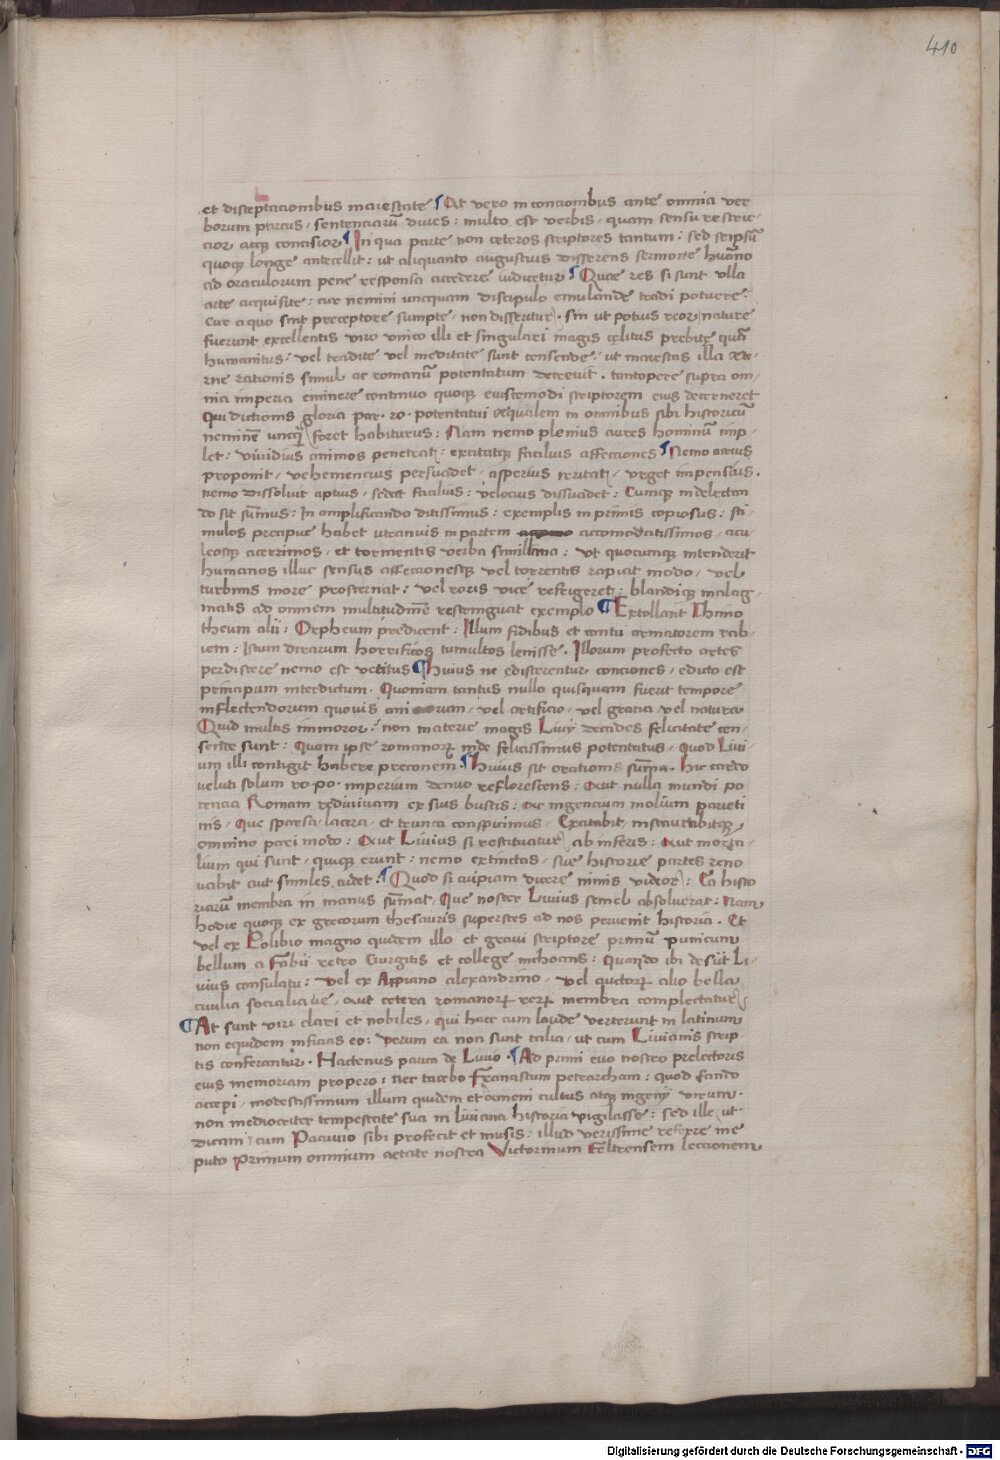 410
et disceptacionibus maiestate ¶ At vero in concionibus ante omnia ver
borum parcus, sentenciarū dives: multo est verbis, quam sensu restric-
cior atqꝫ concisior ¶ In qua parte non ceteros scriptores tantum: sed seipsū
quoqꝫ longe antecellit: ut aliquanto augustius disserens sermone huāno
ad oraculorum pene responsa accedere videtur ¶ Que res si sunt ulla
arte acquisite: cur nemini uncquam discipulo emulande tradi potuere.
Cur a quo sint preceptore sumpte, non disseritur. sin ut potius reor nature
fuerunt excellentis viro unico illi et singulari magis celitus prebite quā
humanitus: vel tradite vel meditate sunt censende: ut maiestas illa ete-
rne rationis simul ac romanū potentatum decrevit, tantopere supra om-
nia imperia eminere continuo quoqꝫ eiuscemodi scriptorem eius decerneret
Qui dictionis gloria par. ro. potentatui equalem in omnibus sibi historicū
neminē unqꝫ foret habiturus: Nam nemo plenius aures hominū imp-
let: vividius animos penetrat: excitatqꝫ facilius affectiones ¶ Nemo arcius
proponit, vehemencius persuadet, asperius irritat, urget impensius.
nemo dissoluit aptius, sedat facilius: velocius dissuadet: Cumqꝫ in delectan
do sit sūmus: In amplificando ditissimus: exemplis in primis copiosus: sti
mulos precipue habet utramvis in partem accomodatissimos, acu
leosqꝫ acerrimos, et tormentis verba simillima: ut quocumqꝫ intenderit
humanos illuc sensus affectionesqꝫ vel torrentis rapiat modo, vel
turbinis more prosternat: vel roris vice refrigeret: blandiqꝫ malag-
matis ad omnem multitudinē restringuat exemplo ¶ Extollant Thimo
theum alii: Orpheum predicent: Illum fidibus et cantu armatorem rab-
iem: Istum dirarum horrificos tumultos lenisse. Illorum profecto artes
perdiscere nemo est vetitus ¶ Huius ne edisserentur conciones, edicto est
principum interdictum. Quoniam tantus nullo quisquam fuerit tempore
inflectendorum quovis animorum, vel artificio, vel gratia vel natura
Quid multis immoror: non materie magis Livij decades felicitate cen-
sende sunt: Quam ipse romanorꝝ inde felicissimus potentatus, Quod Livi
um illi contigit habere preconem. ¶ Huius sit orationis sūma. Hic cardo
veluti solum ro. po. imperium denuo reflorescens: Aut nulla mundi po
tencia Romam redivivam ex suis bustis: Ac ingencium molium parieti
nis, Que sparsa lacera, et trunca conspicimus, Excitabit, instaurabitqꝫ,
omnino pari modo: Aut Livius si restituatur ab inferis: aut morta-
lium qui sunt, quiqꝫ erunt: nemo extinctas, sue historie partes reno
vabit aut similes cudet: ¶ Quod si cuipiam dicere nimis videor: Ea histo
riarū membra in manus sūmat, Que noster Livius semel absolverat: Nam
hodie quoqꝫ ex grecorum thesauris superstes ad nos pervenit historia. Et
vel ex Polibio magno quidem illo et gravi scriptore primū punicum
bellum a Fabii retro Gurgitis et college inchoans: Quando ibi desiit Li-
vius consulatu: vel ex Appiano alexandrino, vel auctorꝝ alio bella
civilia socialia ve, aut cetera romanorꝝ rerꝝ membra complectatur
¶ At sunt viri clari et nobiles, qui hacc cum laude verterunt in latinum
non equidem inficias eo: verum ea non sunt talia, ut cum Livianis scrip-
tis conferantur. Hactenus pauca de Livio. ¶ Ad primi evo nostro prelectoris
eius memoriam propero: nec tacebo Franciscum petrarcham: quod fando
accepi, modestissimum illum quidem et ameni cultus atqꝫ ingenij virum.
non mediocriter tempestate sua in liviana historia vigilasse: sed ille, ut
dicam, cum Pacuvio sibi profecit et musis: illud verissime referre me
puto Primum omnium aetate nostra Victorinum Feltrensem leccionem
Digitalisierung gefördert durch die Deutsche Forschungsgemeinschaft - DFG